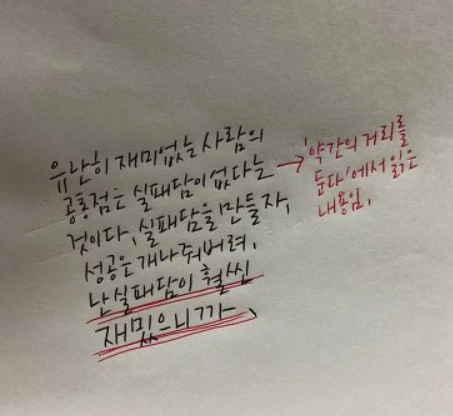 유난히 재미없는 사람의
공통점은 실패담이 없다는
것이다, 실패담을 만들자,
성공은 개나줘버려,
난 실패담이 훨씬
재밌으니까
→ '약간의 거리를
둔다'에서 읽은
내용임.